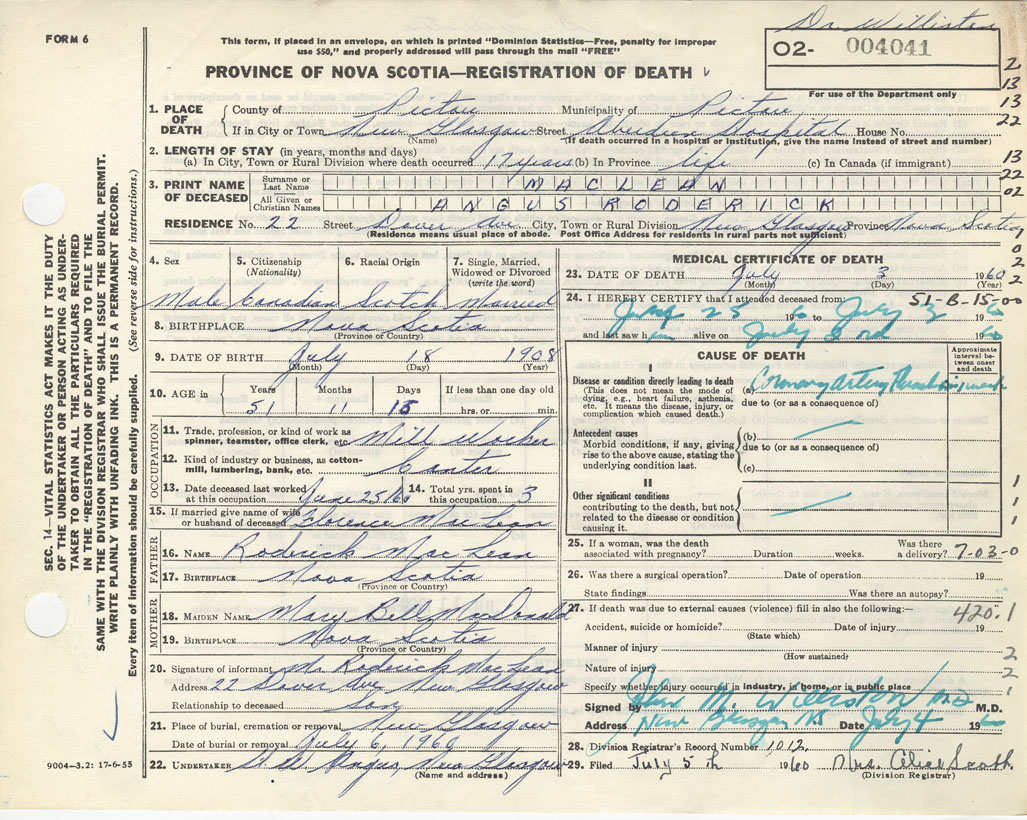 Dr. Williston
FORM 6
This form, if placed in an envelope, on which is printed "Dominion Statistics—Free, penalty for improper
use $50," and properly addressed will pass through the mail "FREE"
O2- 004041
PROVINCE OF NOVA SCOTIA—REGISTRATION OF DEATH
For use of the Department only
2
13
13
22
13
22
02
0
2
2
1. PLACE OF DEATH County of Pictou Municipality of Pictou
If in City or Town New Glasgow Street Aberdeen Hospital House No.
(Name) (If death occurred in a hospital or institution, give the name instead of street and number)
2. LENGTH OF STAY (in years, months and days)
(a) In City, Town or Rural Division where death occurred 17 years (b) In Province life (c) In Canada (if immigrant)
3. PRINT NAME OF DECEASED Surname or Last Name MACLEAN
All Given or Christian Names ANGUS RODERICK
RESIDENCE No. 22 Street Dover Ave City, Town or Rural Division New Glasgow Province Nova Scotia
(Residence means usual place of abode. Post Office Address for residents in rural parts not sufficient)
4. Sex 5. Citizenship (Nationality) 6. Racial Origin 7. Single, Married, Widowed or Divorced (write the word)
Male Canadian Scotch Married
8. BIRTHPLACE Nova Scotia
(Province or Country)
9. DATE OF BIRTH July 18 1908
(Month) (Day) (Year)
10. AGE in Years Months Days If less than one day old
51 11 15 hrs. or min.
OCCUPATION
11. Trade, profession, or kind of work as spinner, teamster, office clerk, etc. Mill Worker
12. Kind of industry or business, as cotton-mill, lumbering, bank, etc.
13. Date deceased last worked at this occupation June 25/60 14. Total yrs. spent in this occupation 3
15. If married give name of wife or husband of deceased Florence MacLean
FATHER
16. NAME Roderick MacLean
17. BIRTHPLACE Nova Scotia
(Province or Country)
MOTHER
18. MAIDEN NAME Mary Bell MacDonald
19. BIRTHPLACE Nova Scotia
(Province or Country)
20. Signature of informant Mr. Roderick MacLean
Address 22 Dover Ave New Glasgow
Relationship to deceased son
21. Place of burial, cremation or removal New Glasgow
Date of burial or removal July 6, 1960
22. UNDERTAKER New Glasgow
(Name and address)
MEDICAL CERTIFICATE OF DEATH
23. DATE OF DEATH July 3 1960
(Month) (Day) (Year)
24. I HEREBY CERTIFY that I attended deceased from: 51-B-15-00
25 1960 to July 3 1960
and last saw him alive on July 3rd 1960
CAUSE OF DEATH
Approximate interval between onset and death
I
Disease or condition directly leading to death (a) Coronary artery Thrombosis
(This does not mean the mode of dying, e.g., heart failure, asthenia, etc. It means the disease, injury, or complication which caused death.)
due to (or as a consequence of)
Antecedent causes (b)
Morbid conditions, if any, giving rise to the above cause, stating the underlying condition last.
due to (or as a consequence of)
(c)
II
Other significant conditions
contributing to the death, but not related to the disease or condition causing it.
1
1
1
25. If a woman, was the death associated with pregnancy? Duration weeks. Was there a delivery? 7-03-0
26. Was there a surgical operation? Date of operation 19
State findings Was there an autopsy?
27. If death was due to external causes (violence) fill in also the following:— 420.1
Accident, suicide or homicide? Date of injury 19
(State which)
Manner of injury 2
(How sustained)
Nature of injury 2
Specify whether injury occurred in industry, in home, or in public place 1
Signed by John M. Williston MD M.D.
Address New Glasgow NS Date July 4 1960
28. Division Registrar's Record Number 1012
29. Filed July 5th 1960 Mrs. Alice Scott
(Division Registrar)
SEC. 14—VITAL STATISTICS ACT MAKES IT THE DUTY
OF THE UNDERTAKER OR PERSON ACTING AS UNDER-
TAKER TO OBTAIN ALL THE PARTICULARS REQUIRED
IN THE "REGISTRATION OF DEATH" AND TO FILE THE
SAME WITH THE DIVISION REGISTRAR WHO SHALL ISSUE THE BURIAL PERMIT.
WRITE PLAINLY WITH UNFADING INK. THIS IS A PERMANENT RECORD.
Every item of information should be carefully supplied. (See reverse side for instructions.)
9004—3.2: 17-6-55